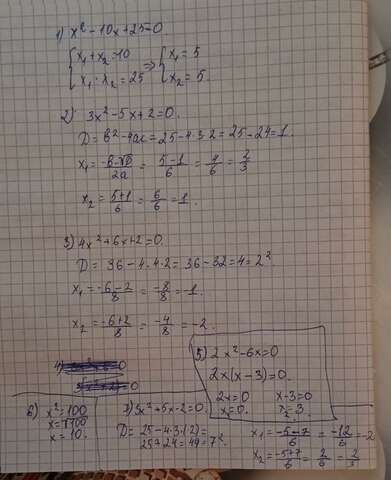 1) x² - 10x + 25 = 0
{ x₁ + x₂ = 10
x₁ · x₂ = 25 ⇒ { x₁ = 5
x₂ = 5.
2) 3x² - 5x + 2 = 0.
D = b² - 4ac = 25 - 4·3·2 = 25 - 24 = 1.
x₁ = (-b-√D)/2a = (5-1)/6 = 4/6 = 2/3
x₂ = (5+1)/6 = 6/6 = 1.
3) 4x² + 6x + 2 = 0.
D = 36 - 4·4·2 = 36 - 32 = 4 = 2²
x₁ = (-6-2)/8 = -8/8 = -1.
x₂ = (-6+2)/8 = -4/8 = -2.
5) 2x² - 6x = 0
2x(x - 3) = 0.
2x = 0 x - 3 = 0
x₁ = 0. x₂ = 3.
6) x² = 100
x = √100
x = 10.
7) 3x² + 5x - 2 = 0.
D = 25 - 4·3·(-2) =
25 + 24 = 49 = 7².
x₁ = (-5-7)/6 = -12/6 = -2
x₂ = (-5+7)/6 = 2/6 = 2/3